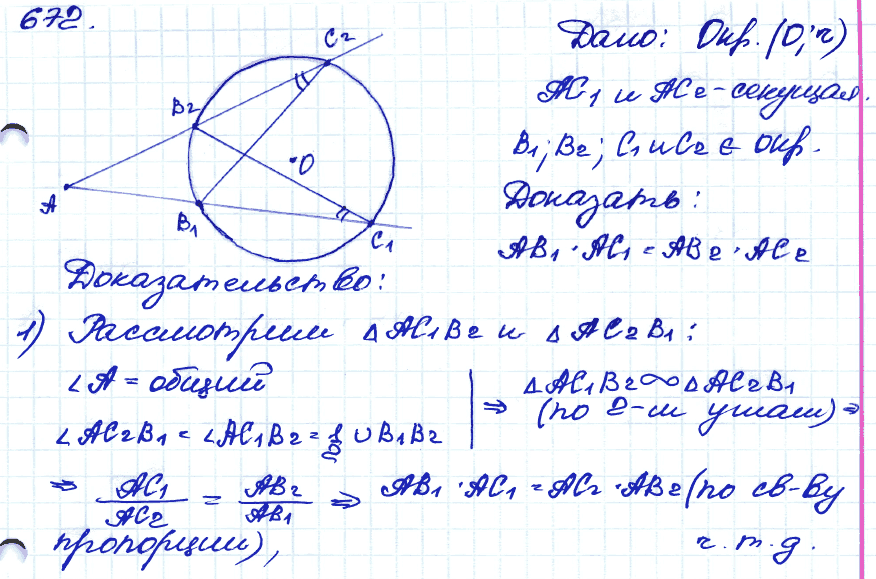 672.
Дано: Окр. (O; r)
AC₁ и AC₂ - секущая.
B₁; B₂; C₁ и C₂ ∈ Окр.
Доказать:
AB₁ · AC₁ = AB₂ · AC₂
C₂
B₂
O
A
B₁
C₁
Доказательство:
1) Рассмотрим △ AC₁B₂ и △ AC₂B₁:
∠A = общий
∠AC₂B₁ = ∠AC₁B₂ = 1/2 ∪ B₁B₂
⇒ △ AC₁B₂ ∞ △ AC₂B₁
(по 2-м углам) ⇒
⇒ AC₁/AC₂ = AB₂/AB₁ ⇒ AB₁ · AC₁ = AC₂ · AB₂ (по св-ву
пропорции), ч.т.д.